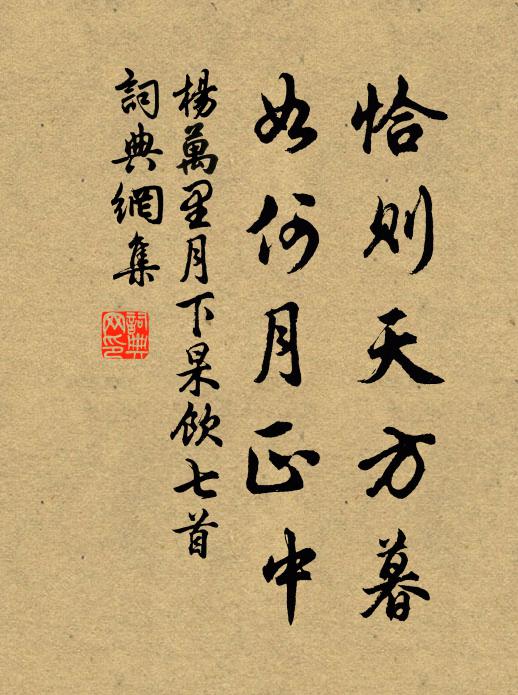 恰則天方暮
如何月正中
楊萬里月下杲飲七首
詞典網集
詞典
网印